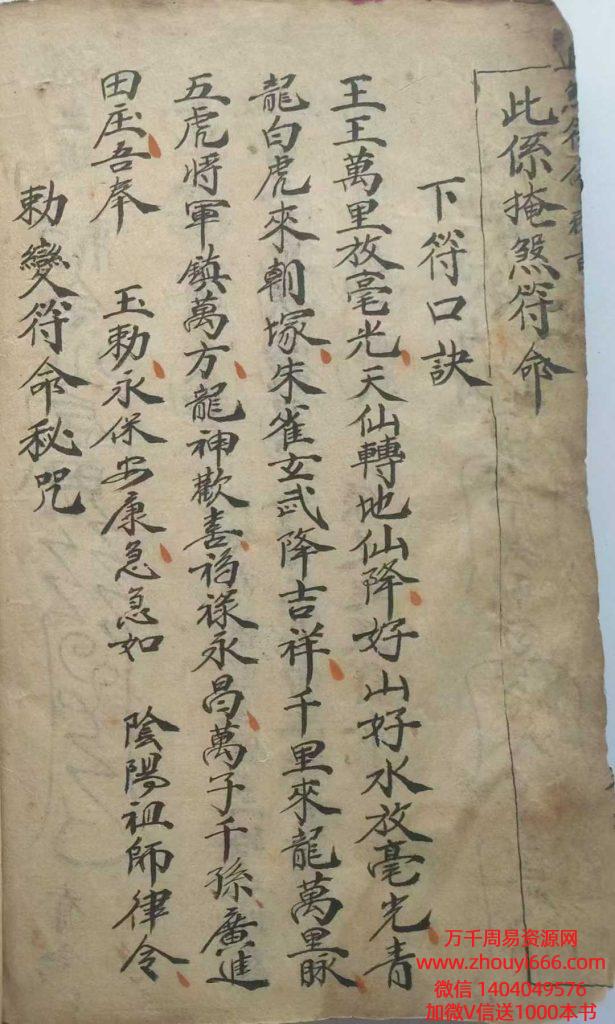 此係掩煞符命
下符口訣
王王萬里放毫光天仙轉地仙降好山好水放毫光青
龍白虎來朝塚朱雀玄武降吉祥千里來龍萬里脈
五虎將軍鎮萬方龍神歡喜福祿永昌萬子千孫廣進
田庄吾奉 玉勅永保安康急急如 陰陽祖師律令
勅變符命秘咒
万千周易资源网
www.zhouyi666.com
微信 1404049576
加微V信送1000本书